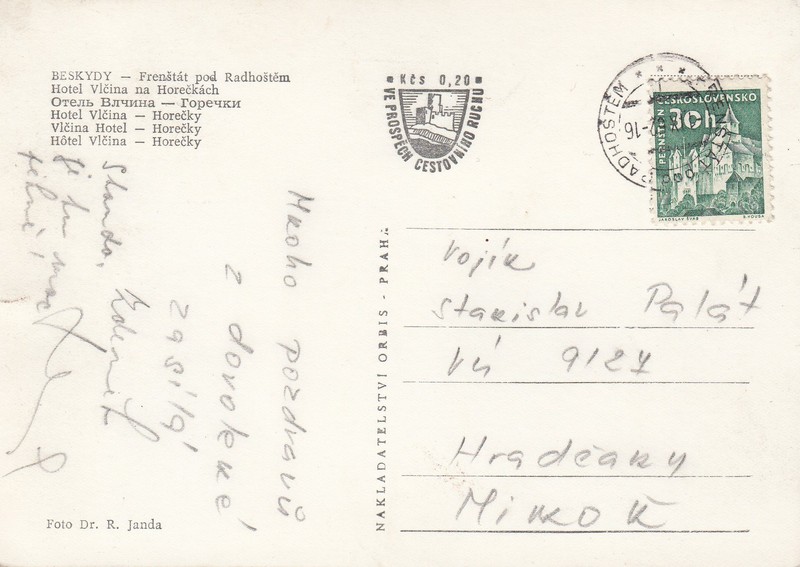 BESKYDY — Frenštát pod Radhoštěm
Hotel Vlčina na Horečkách
Отель Влчина — Горечки
Hotel Vlčina — Horečky
Vlčina Hotel — Horečky
Hôtel Vlčina — Horečky
Kčs 0,20
VE PROSPĚCH CESTOVNÍHO RUCHU
RADHOŠTĚM
ČESKOSLOVENSKO
30h
PERNŠTEJN
JAROSLAV ŠVÁB
J. HOUSA
Mnoho pozdravů
z dovolené
zasílá
Standa, Zdeněk
NAKLADATELSTVÍ ORBIS - PRAHA
Vojín
Stanislav Palát
VÚ 9127
Hradčany
Mimoň
Foto Dr. R. Janda